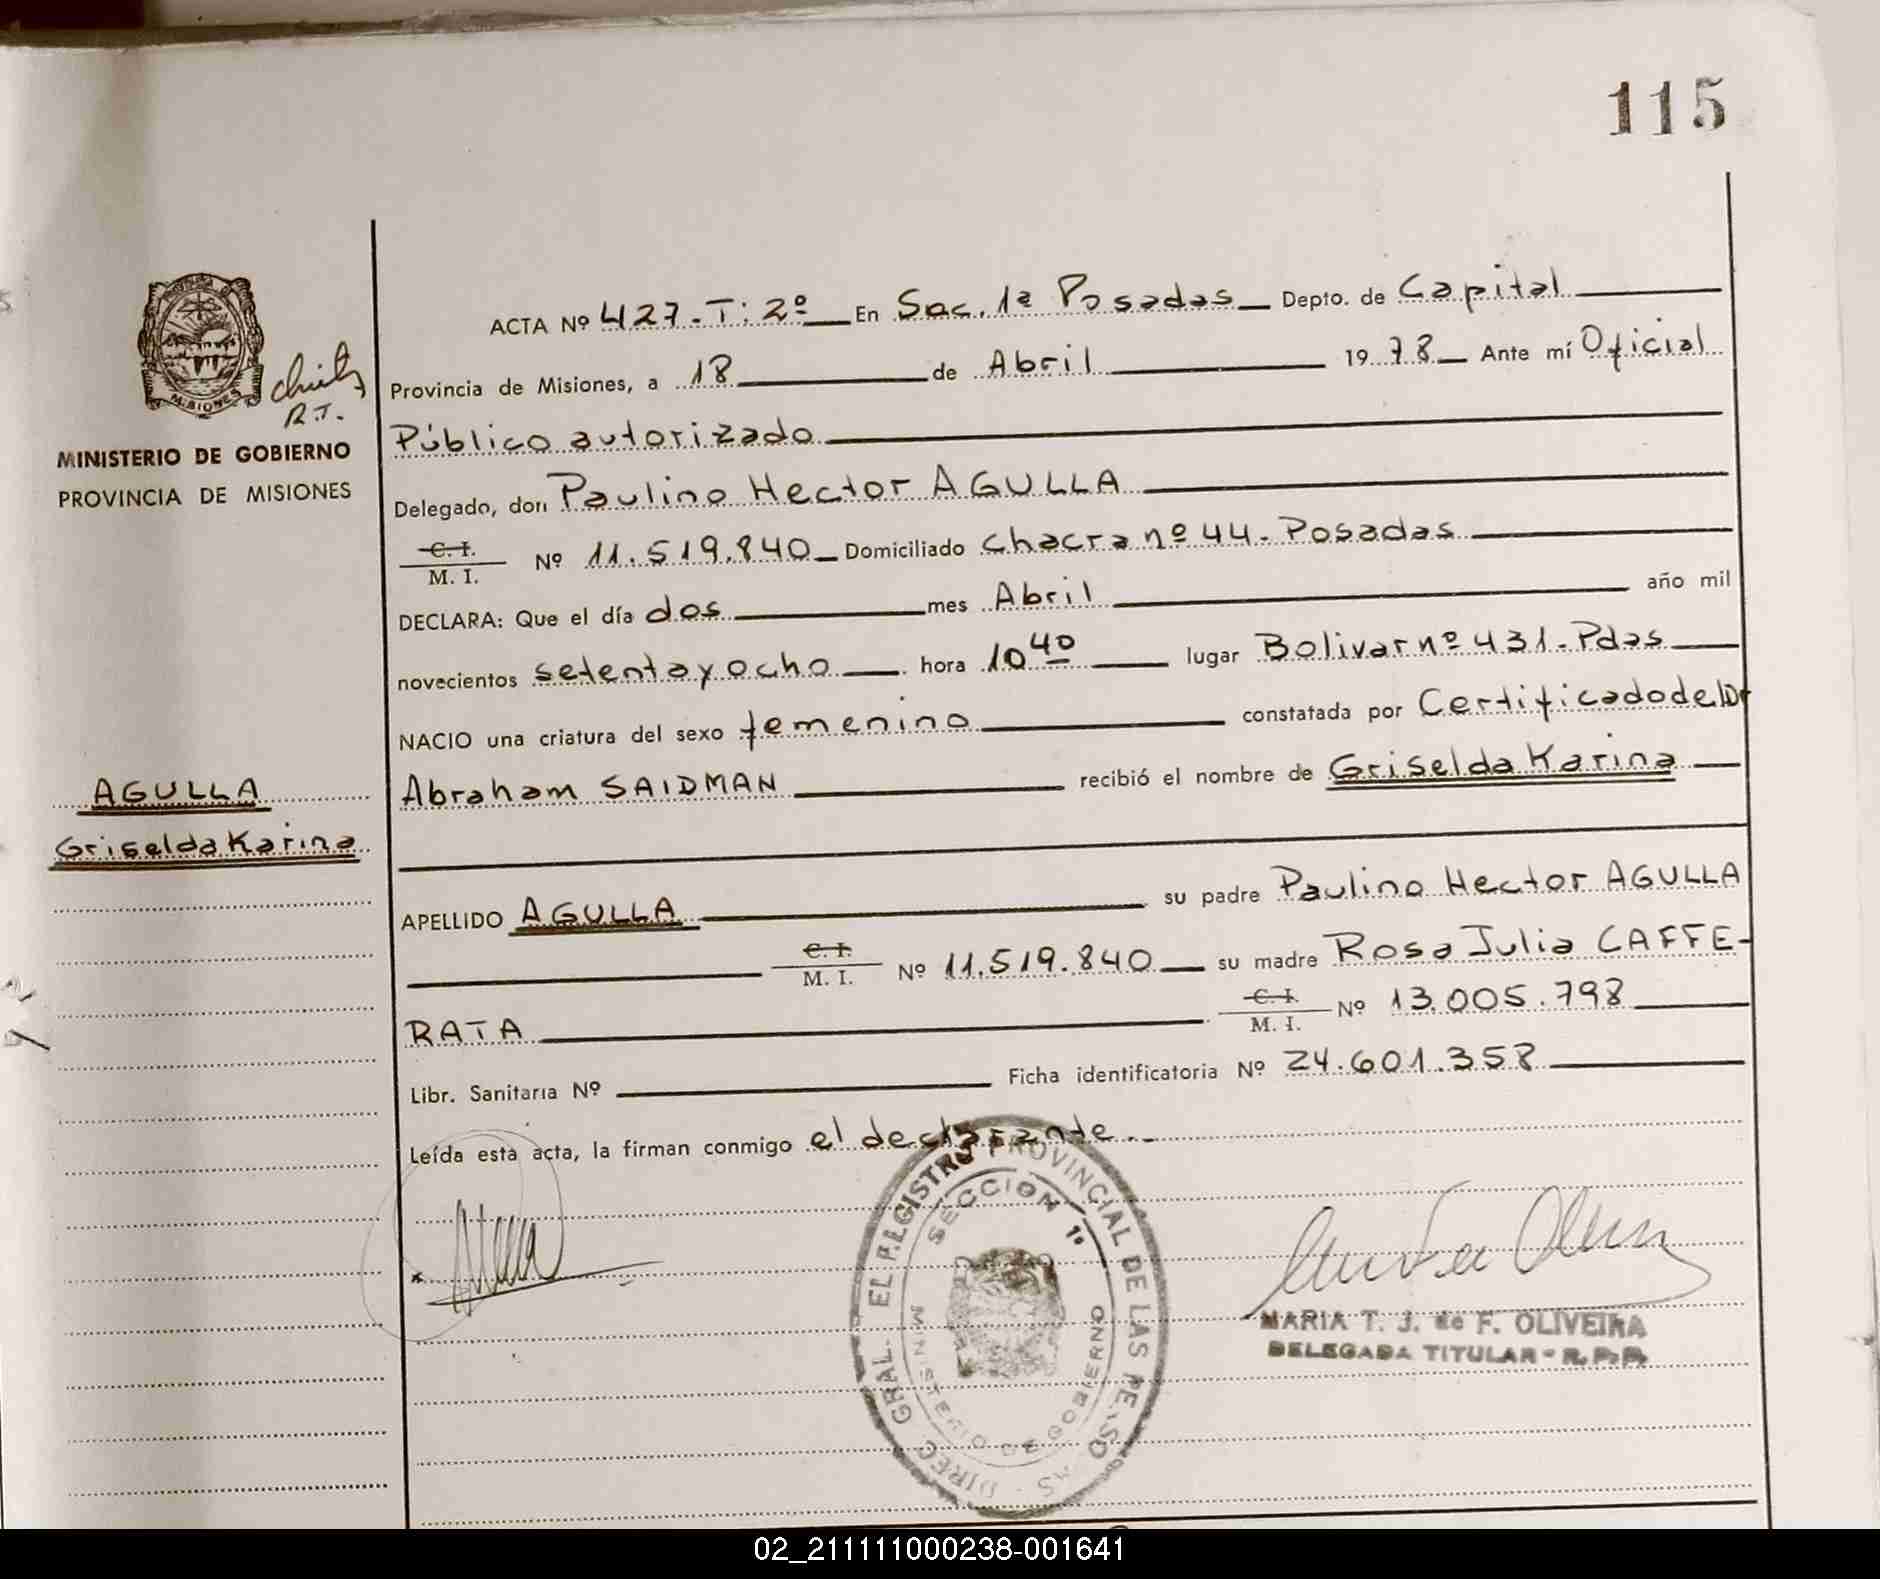 115
ACTA Nº 427-T: 2º En Sac. 1ª Posadas Depto. de Capital
Provincia de Misiones, a 18 de Abril 1978 Ante mí Oficial
R.T.
Público autorizado
MINISTERIO DE GOBIERNO
PROVINCIA DE MISIONES
MISIONES
Delegado, don Paulino Hector AGULLA
C. I. / M. I. Nº 11.519.840 Domiciliado chacra nº 44 - Posadas
DECLARA: Que el día dos mes Abril año mil
novecientos setenta y ocho hora 10 40 lugar Bolivar nº 431 - Pdas
NACIO una criatura del sexo femenino constatada por Certificado del Dr
AGULLA
Griselda Karina
Abraham SAIDMAN recibió el nombre de Griselda Karina
APELLIDO AGULLA su padre Paulino Hector AGULLA
C. I. / M. I. Nº 11.519.840 su madre Rosa Julia CAFFE-
RATA C. I. / M. I. Nº 13.005.798
Libr. Sanitaria Nº Ficha identificatoria Nº 24.601.358
Leída esta acta, la firman conmigo el declarante.-
SECCION 1º
MINISTERIO DE GOBIERNO
MARIA T. J. de F. OLIVEIRA
DELEGADA TITULAR - R.P.P.
02_211111000238-001641